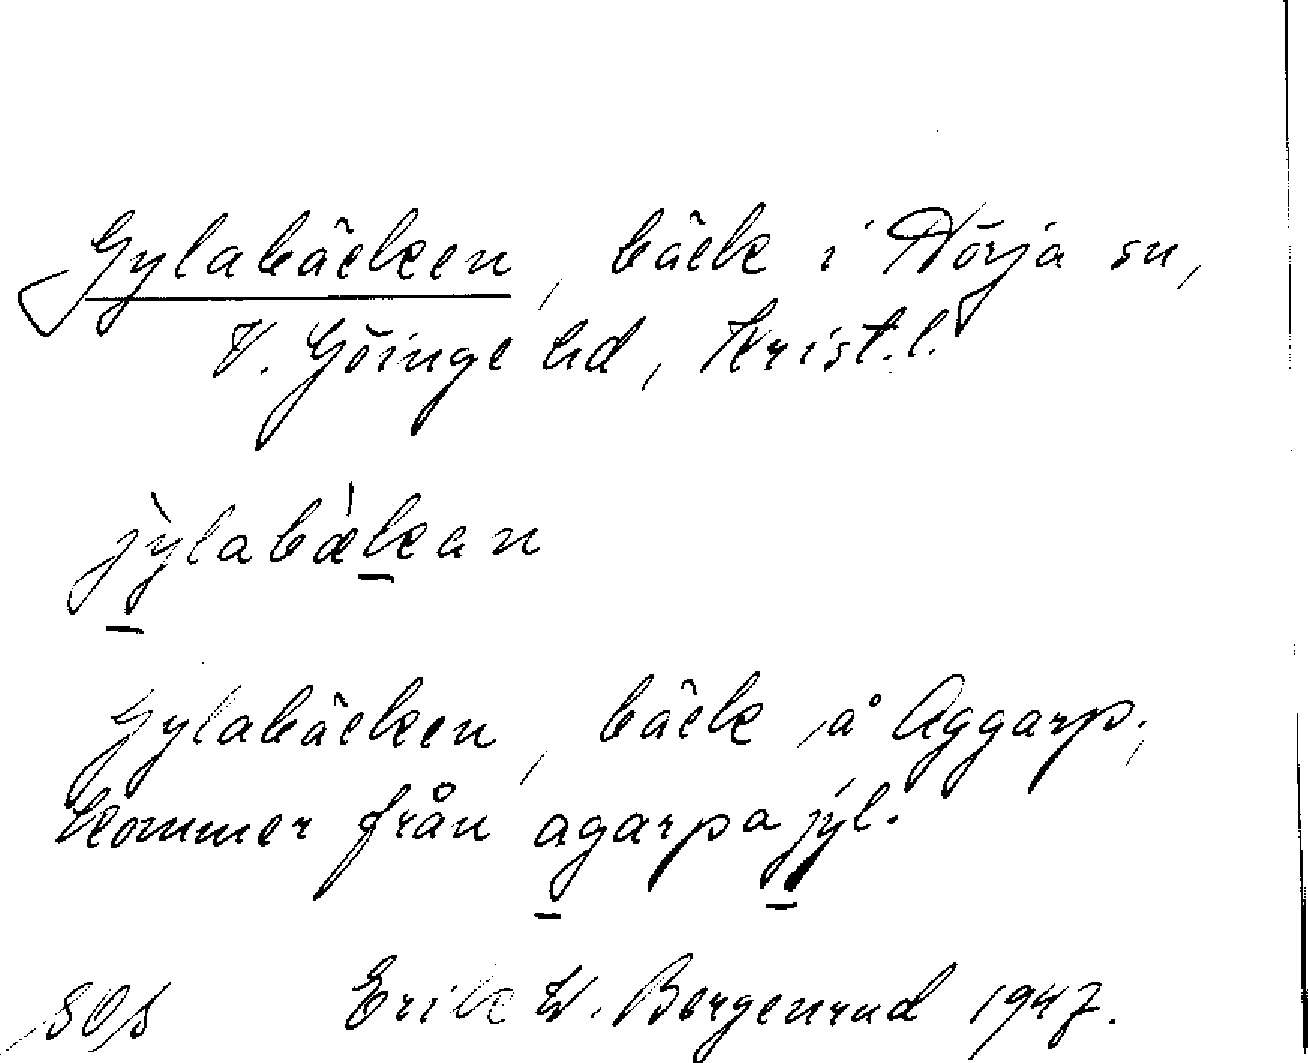 Gylabäcken, bäck i Nörja sn,
V. Göinge hd, Krist. l.
jỳlabàkan
Gylabäcken, bäck å Aggarp;
kommer från agarpa jýl.
Erik W. Bergenrud 1947.